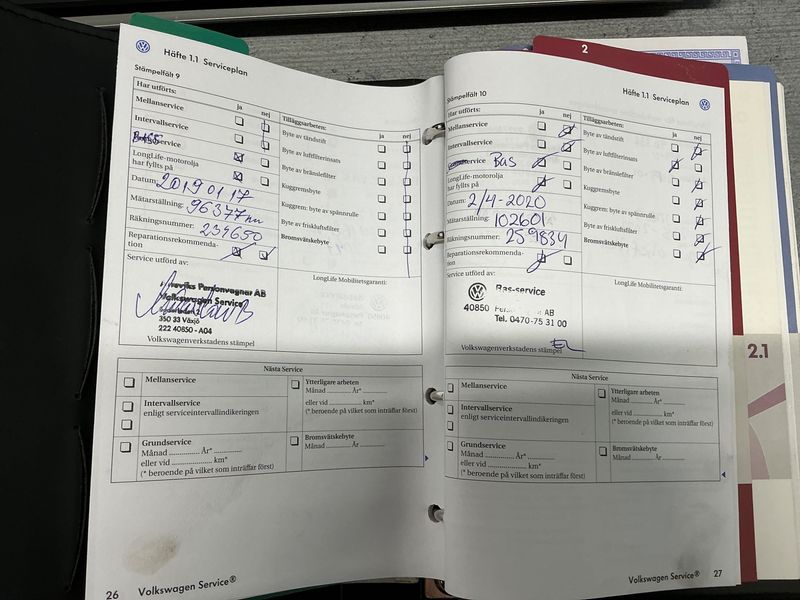 Häfte 1.1 Serviceplan
Stämpelfält 9
Har utförts:
ja nej
Mellanservice
Intervallservice
LongLife-motorolja
har fyllts på
Datum: 2019 01 17
Mätarställning: 96377
Räkningsnummer: 234650
Reparationsrekommenda-
tion
Service utförd av:
Personvagnar AB
Volkswagen Service
350 33 Växjö
222 40850 - A04
Volkswagenverkstadens stämpel
Tilläggsarbeten:
ja nej
Byte av tändstift
Byte av luftfilterinsats
Byte av bränslefilter
Kuggremsbyte
Kuggrem: byte av spännrulle
Byte av friskluftsfilter
Bromsvätskebyte
LongLife Mobilitetsgaranti:
Nästa Service
Mellanservice
Intervallservice
enligt serviceintervallindikeringen
Grundservice
Månad ............. År* ............
eller vid .................. km*
(* beroende på vilket som inträffar först)
Ytterligare arbeten
Månad .......... År*
eller vid .............. km*
(* beroende på vilket som inträffar först)
Bromsvätskebyte
Månad .......... År
26 Volkswagen Service®
2
Häfte 1.1 Serviceplan
Stämpelfält 10
Har utförts:
ja nej
Mellanservice
Intervallservice
service Bas
LongLife-motorolja
har fyllts på
Datum: 2/4-2020
Mätarställning: 102601
Räkningsnummer: 259834
Reparationsrekommenda-
tion
Service utförd av:
Bas-service
40850 AB
Tel. 0470-75 31 00
Volkswagenverkstadens stämpel
Tilläggsarbeten:
ja nej
Byte av tändstift
Byte av luftfilterinsats
Byte av bränslefilter
Kuggremsbyte
Kuggrem: byte av spännrulle
Byte av friskluftsfilter
Bromsvätskebyte
LongLife Mobilitetsgaranti:
Nästa Service
Mellanservice
Intervallservice
enligt serviceintervallindikeringen
Grundservice
Månad ............. År* ............
eller vid .................. km*
(* beroende på vilket som inträffar först)
Ytterligare arbeten
Månad .......... År*
eller vid .............. km*
(* beroende på vilket som inträffar först)
Bromsvätskebyte
Månad .......... År
Volkswagen Service® 27
2.1